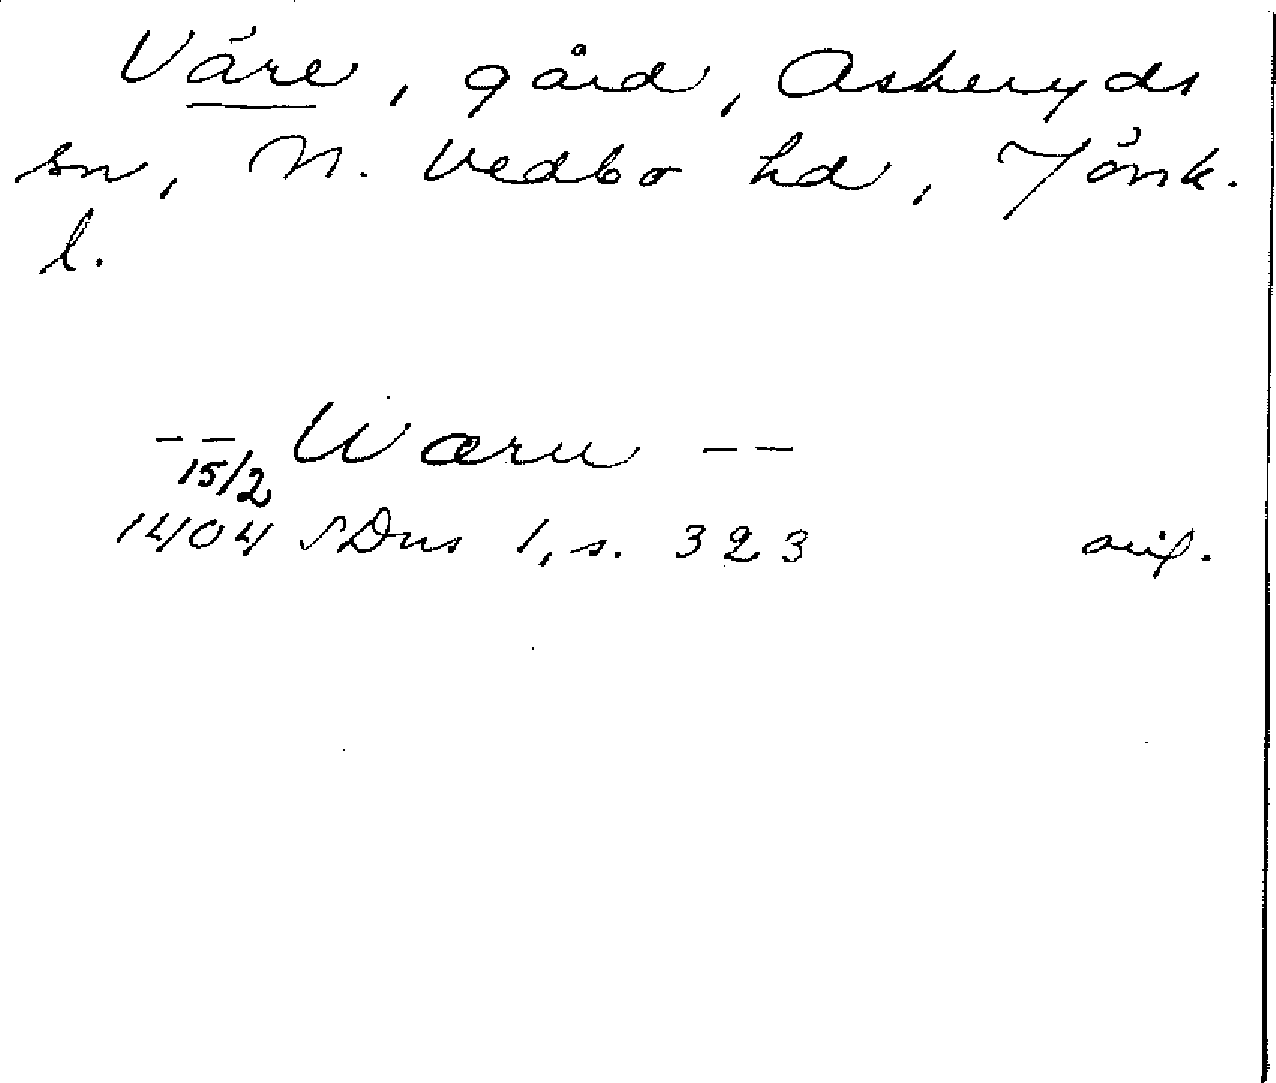 Väre, gård, Askeryds
sn, N. Vedbo hd, Jönk.
l.
-- Wæru --
15/2
1404 SDns 1, s. 323 orig.